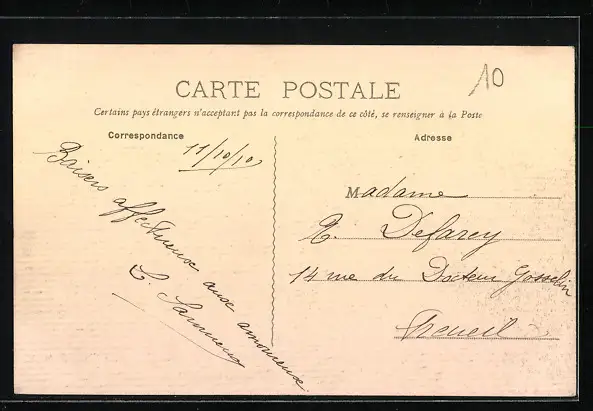 10
CARTE POSTALE
Certains pays étrangers n'acceptant pas la correspondance de ce côté, se renseigner à la Poste
Correspondance
11/10/10
Baisers affectueuse aux amoureuse
Adresse
Madame
14 rue du Docteur Gosselin